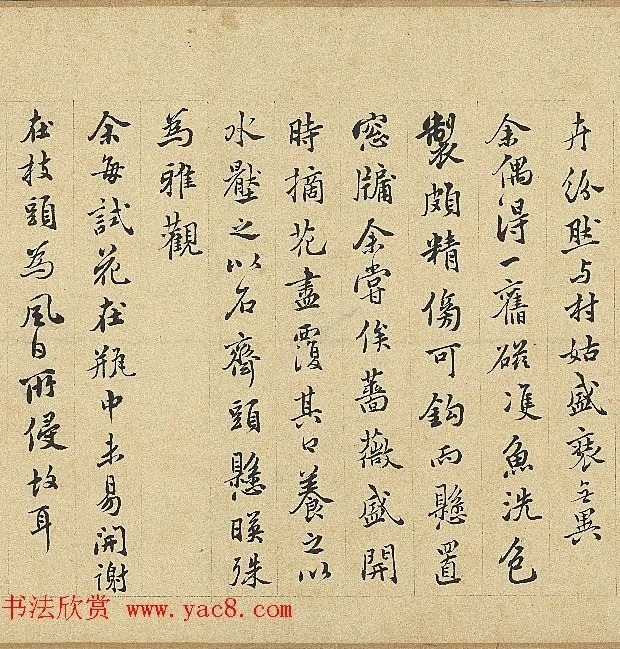 卉紛然与村姑盛裝無異
余偶得一舊磁準魚洗色
製頗精傍可鈎而懸置
窓牖余嘗俟薔薇盛開
時摘花盡覆其口養之以
水壘之以名齋頭懸暎殊
為雅觀
余每試花在瓶中未易開謝
在枝頭為風日所侵故耳
书法欣赏 www.yac8.com